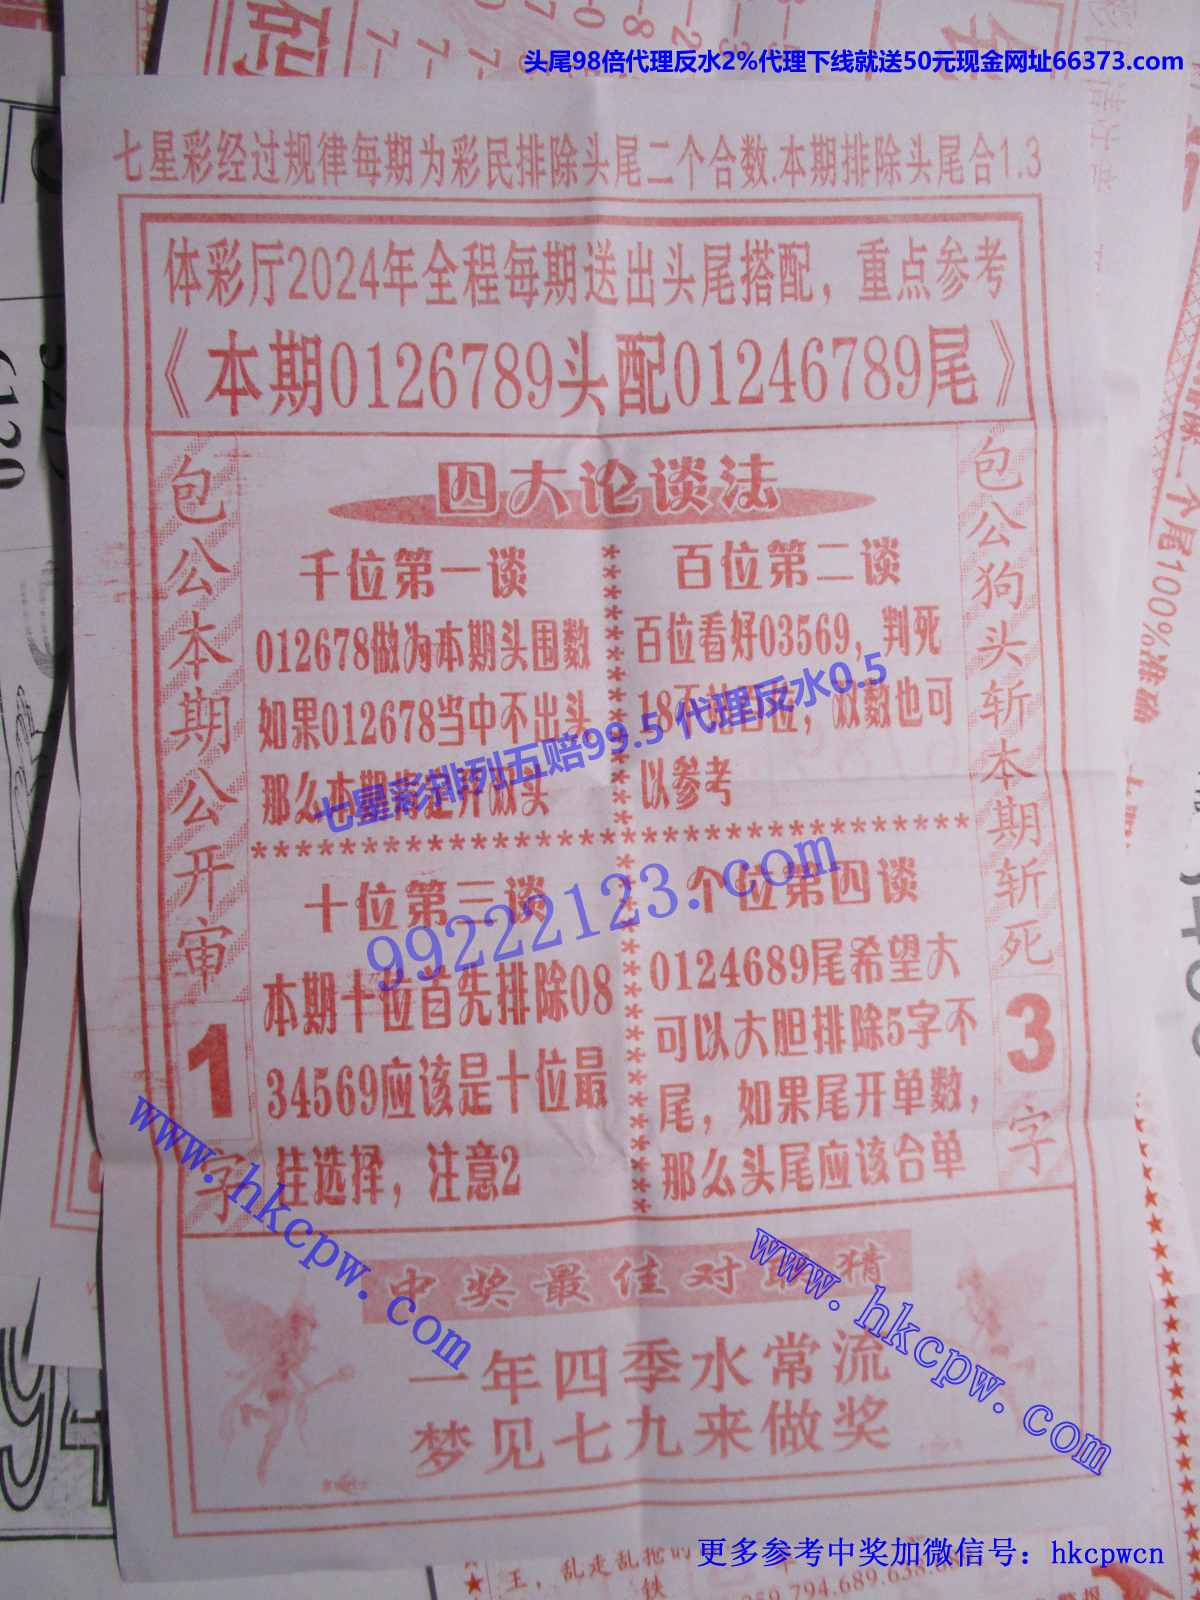 头尾98倍代理反水2%代理下线就送50元现金网址66373.com
七星彩经过规律每期为彩民排除头尾二个合数.本期排除头尾合1.3
体彩厅2024年全程每期送出头尾搭配，重点参考
《本期0126789头配01246789尾》
包公本期公开审
1
字
四大论谈法
千位第一谈
012678做为本期头围数
如果012678当中不出头
那么本期
头
百位第二谈
百位看好03569，判死
18不
百位，双数也可
以参考
七星彩排列五赔99.5 代理反水0.5
99222123.com
十位第三谈
本期十位首先排除08
34569应该是十位最
佳选择，注意2
个位第四谈
0124689尾希望大
可以大胆排除5字不
尾，如果尾开单数，
那么头尾应该合单
包公狗头斩本期斩死
3
字
www.hkcpw.com
www.hkcpw.com
中奖最佳对
猜
一年四季水常流
梦见七九来做奖
更多参考中奖加微信号：hkcpwcn
个尾100%准确
6120
王，乱走乱
铁
259.794.689.638.6